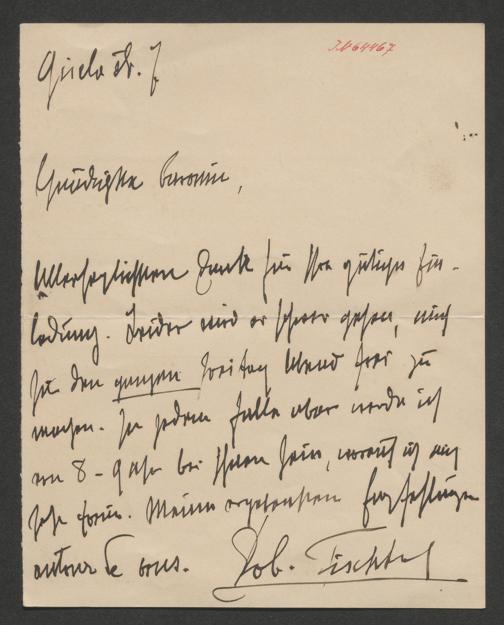 Gisela str. 7
I.N 64467
Gnädigste Baronin,
Allerherzlichsten Dank für Ihre gütige Ein-
ladung. Leider wird es schwer gehen, mich
für den ganzen Freitag Abend frei zu
machen. In jedem Falle aber werde ich
von 8-9 Uhr bei Ihnen sein, worauf ich mich
sehr freue. Meine ergebensten Empfehlungen
autour de vous. Rob. Fischhof